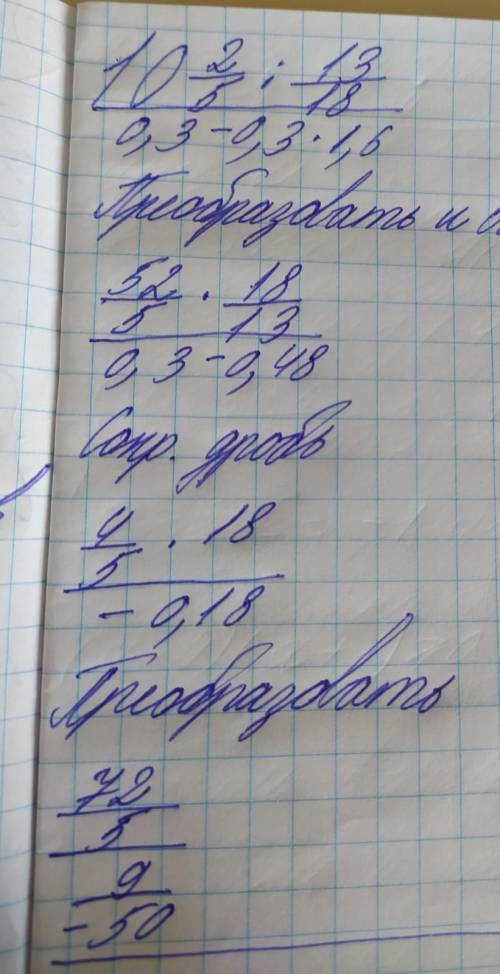 10 2/5 : 13/18
0,3 - 0,3 · 1,6
Преобразовать и
52/5 · 18/13
0,3 - 0,48
Сокр. дробь
4/5 · 18
- 0,18
Преобразовать
72
5
9
- 50